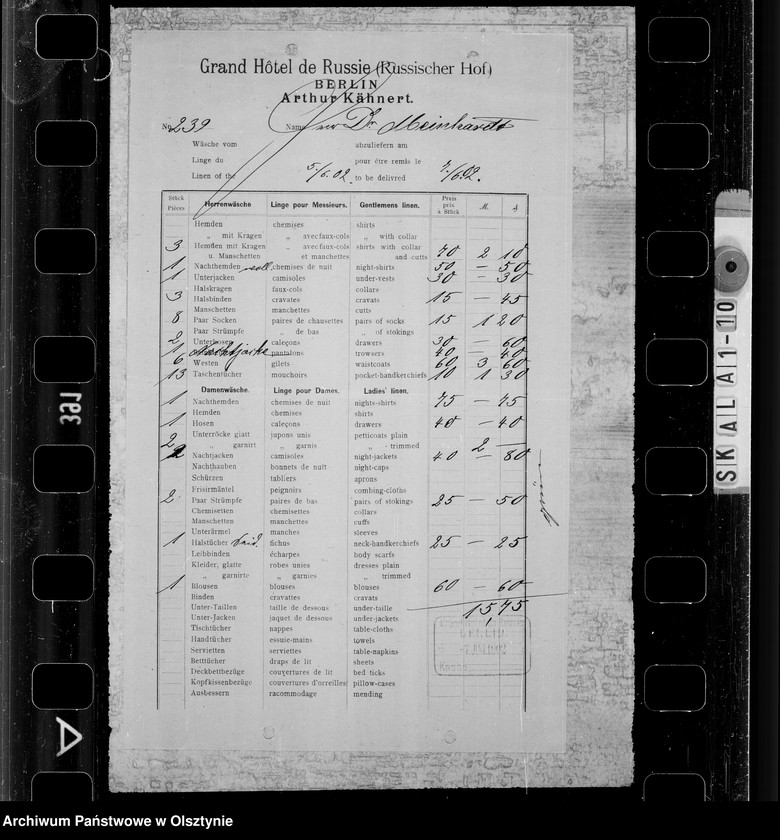 Grand Hôtel de Russie (Russischer Hof)
BERLIN
Arthur Kähnert.
No. 239 Name Dr. Meinhardt
Wäsche vom abzuliefern am
Linge du pour être remis le
Linen of the 5/6.02. to be delivred 7/6.02.
Stück Pièces Herrenwäsche Linge pour Messieurs. Gentlemens linen. Preis prix à Stück M. ₰
Hemden chemises shirts
„ mit Kragen „ avec faux-cols „ with collar
3 Hemden mit Kragen „ avec faux-cols shirts with collar
u. Manschetten et manchettes and cutts 70 2 10
1 Nachthemden chemises de nuit night-shirts 50 — 50
1 Unterjacken camisoles under-vests 30 — 30
Halskragen faux-cols collars
3 Halsbinden cravates cravats 15 — 45
Manschetten manchettes cutts
8 Paar Socken paires de chausettes pairs of socks 15 1 20
Paar Strümpfe „ de bas „ of stokings
2 Unterhosen caleçons drawers 30 — 60
1 Nachtjacke pantalons trowsers 40 — 40
6 Westen gilets waistcoats 60 3 60
13 Taschentücher mouchoirs pocket-handkerchiefs 10 1 30
Damenwäsche. Linge pour Dames. Ladies' linen.
1 Nachthemden chemises de nuit nights-shirts 75 — 75
Hemden chemises shirts
1 Hosen caleçons drawers 40 — 40
Unterröcke glatt jupons unis petticoats plain
2 „ garnirt „ garnis „ - trimmed 2 —
2 Nachtjacken camisoles night-jackets 40 — 80
Nachthauben bonnets de nuit night-caps
Schürzen tabliers aprons
Frisirmäntel peignoirs combing-cloths
2 Paar Strümpfe paires de bas pairs of stokings 25 — 50
Chemisetten chemisettes collars
Manschetten manchettes cuffs
Unterärmel manches sleeves
1 Halstücher seid. fichus neck-handkerchiefs 25 — 25
Leibbinden écharpes body scarfs
Kleider, glatte robes unies dresses plain
„ garnirte „ garnies „ trimmed
1 Blousen blouses blouses 60 — 60
Binden cravattes cravats
Unter-Taillen taille de dessous under-taille 15,75
Unter-Jacken jaquet de dessous under-jackets
Tischtücher nappes table-cloths
Handtücher essuie-mains towels
Servietten serviettes table-napkins
Betttücher draps de lit sheets
Deckbettbezüge couvertures de lit bed ticks
Kopfkissenbezüge couvertures d'oreilles pillow-cases
Ausbessern racommodage mending
BERLIN
391
SKALA 1-10
Archiwum Państwowe w Olsztynie